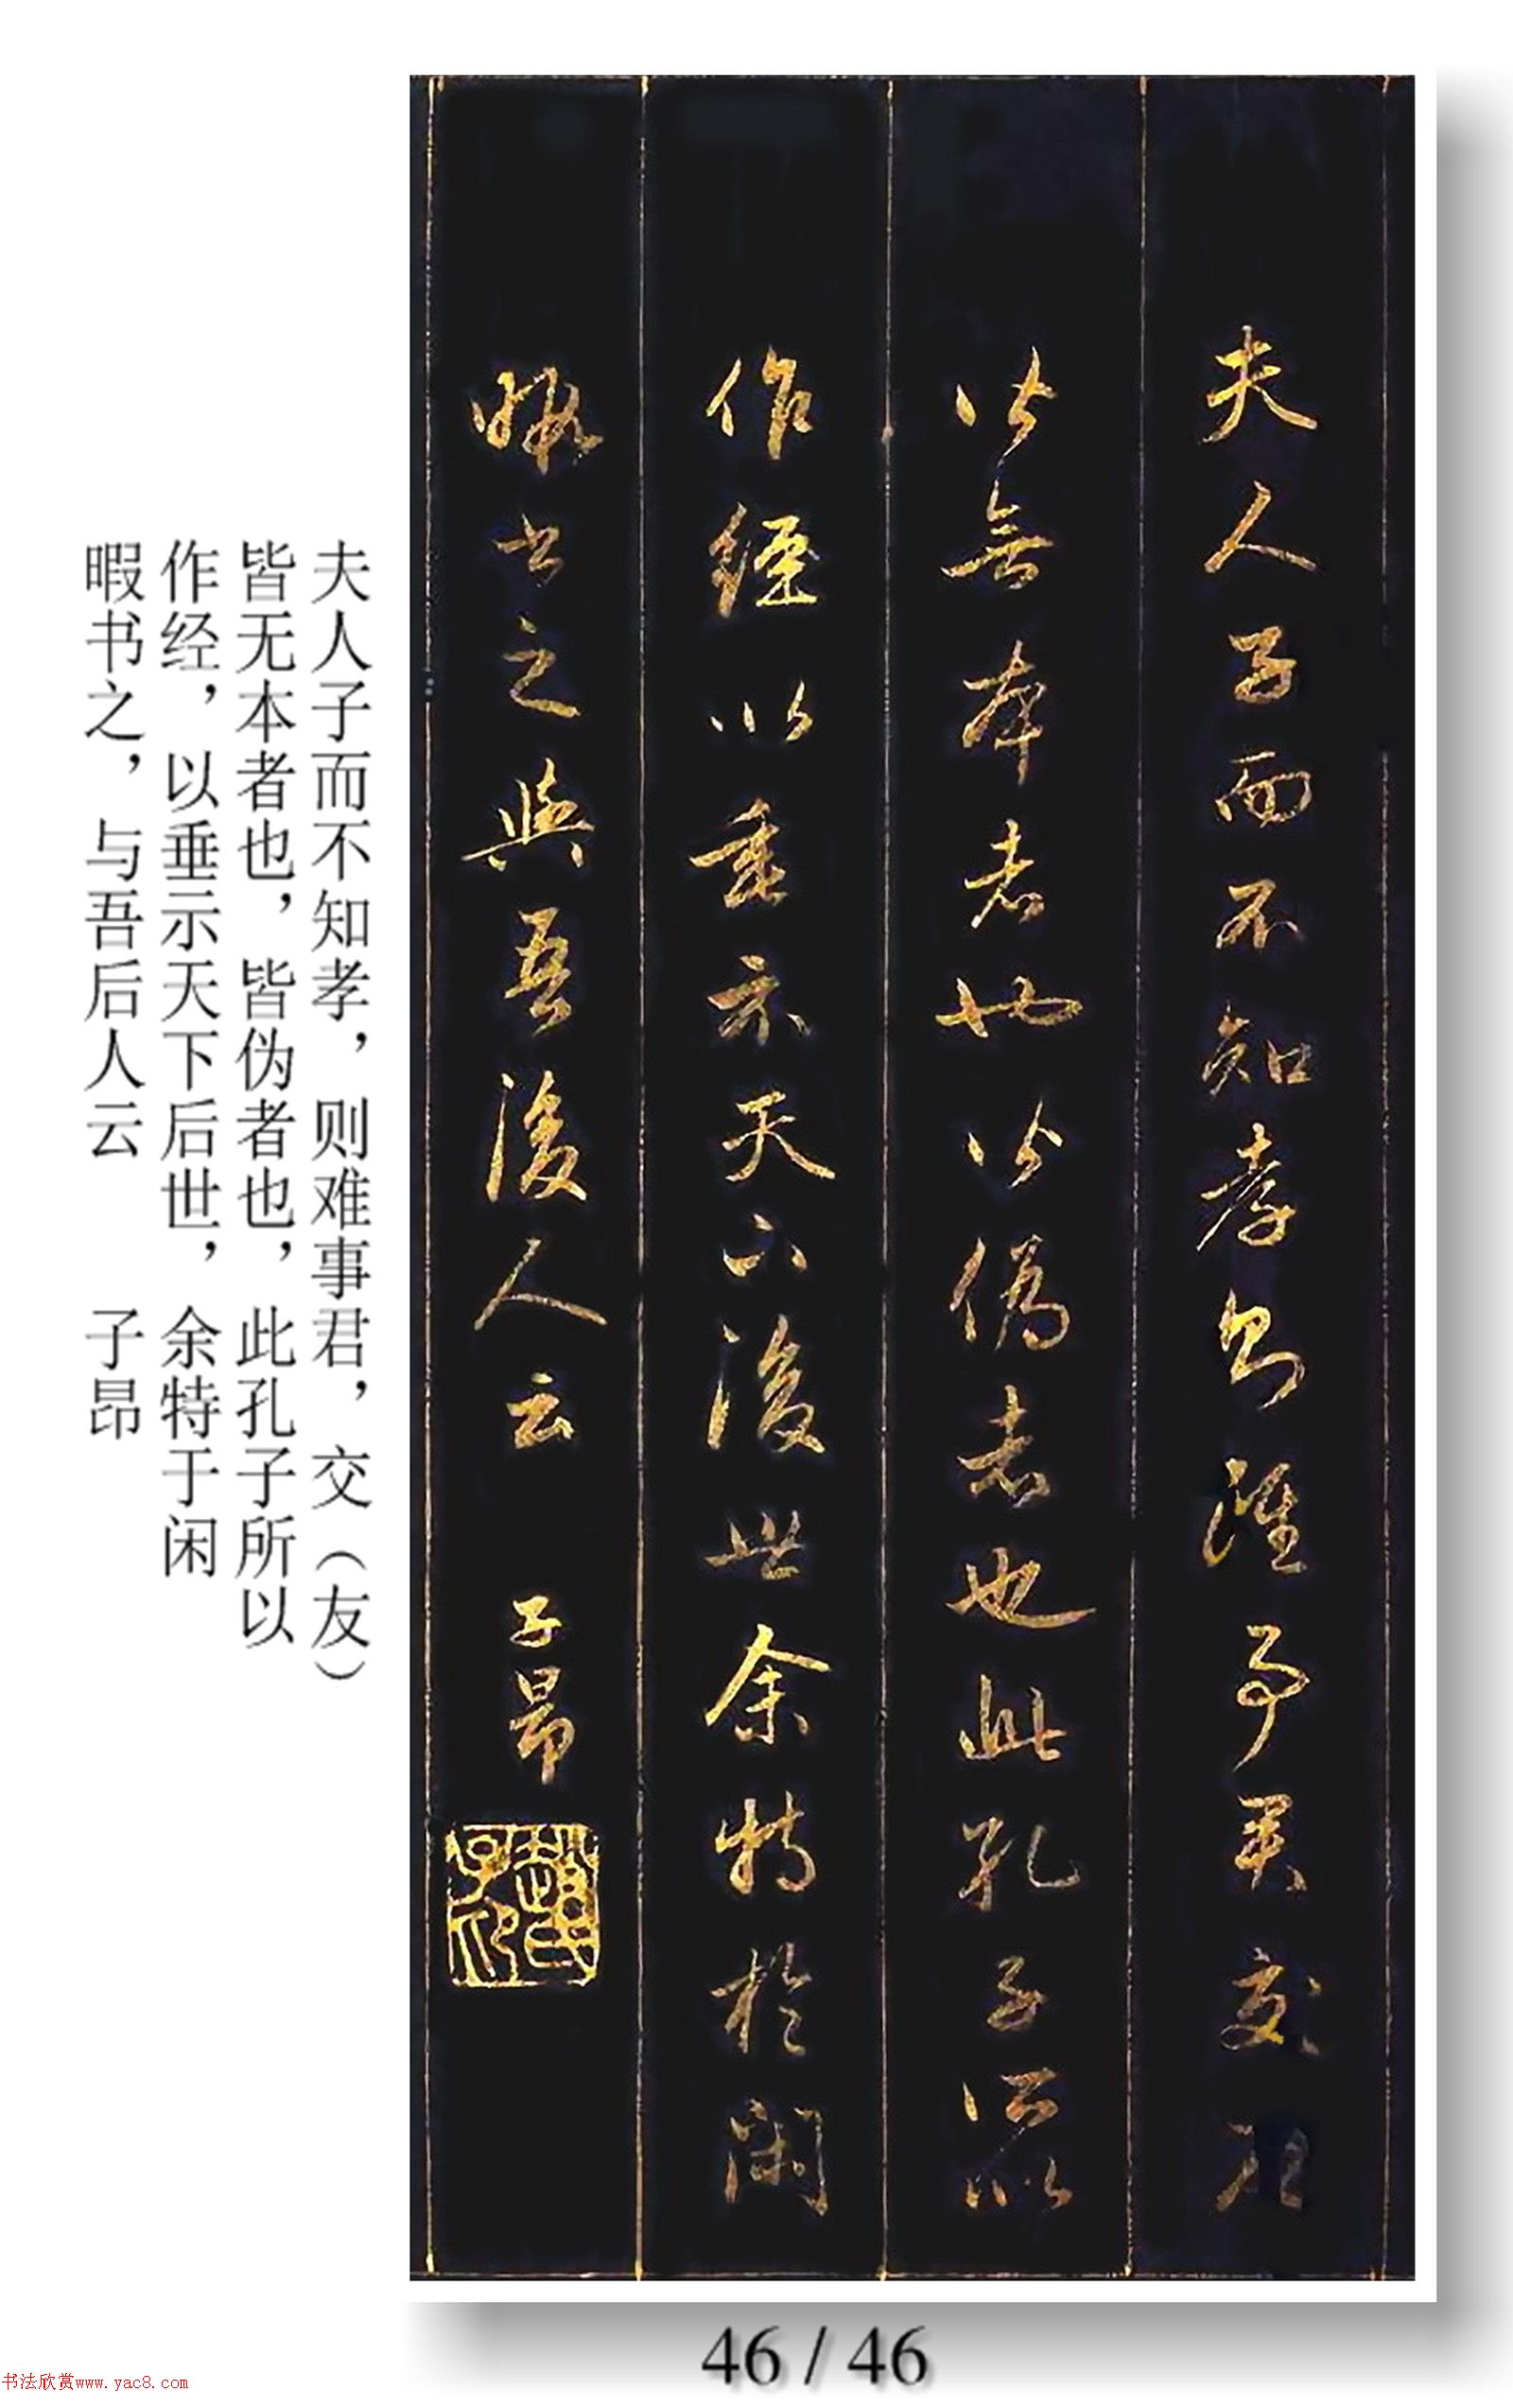 夫人子而不知孝則難事君交
皆無本者也皆偽者也此孔子所以
作經以垂示天下後世余特於閑
暇書之與吾後人云 子昂
趙氏子昂
夫人子而不知孝，则难事君，交（友）
皆无本者也，皆伪者也，此孔子所以
作经，以垂示天下后世，余特于闲
暇书之，与吾后人云 子昂
46 / 46
书法欣赏www.yac8.com